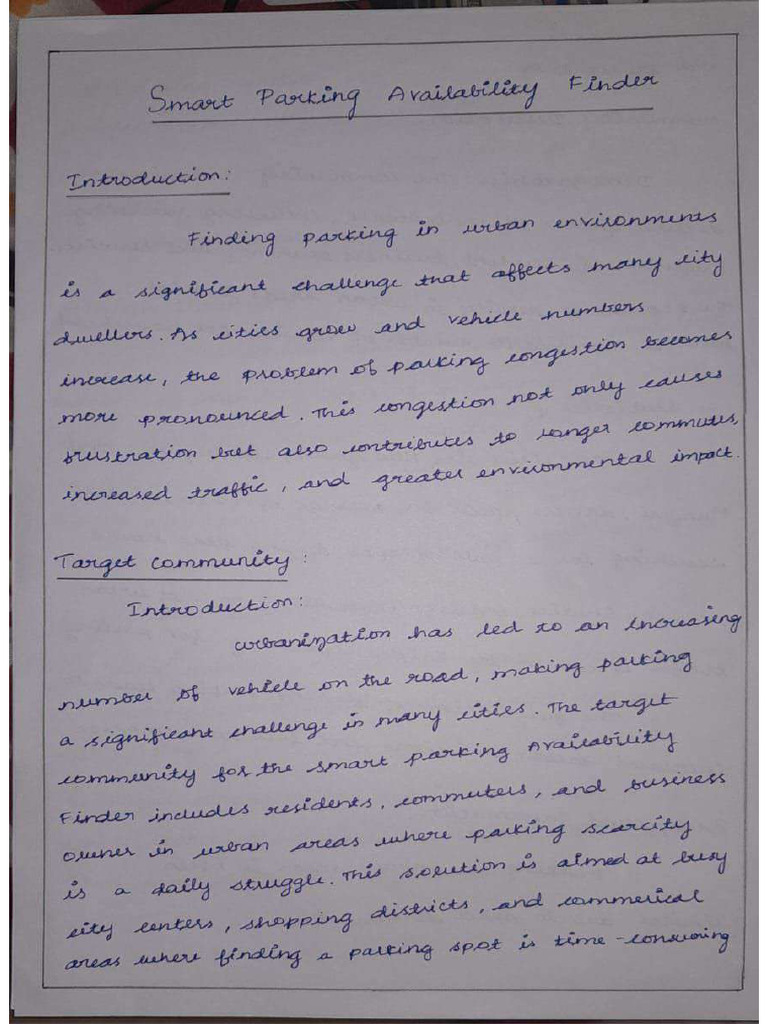 Smart Parking Availability Finder
Introduction:
Finding parking in urban environments
is a significant challenge that affects many city
dwellers. As cities grow and vehicle numbers
increase, the problem of parking congestion becomes
more pronounced. This congestion not only causes
frustration but also contributes to longer commutes,
increased traffic, and greater environmental impact.
Target community:
Introduction:
urbanization has led to an increasing
number of vehicle on the road, making parking
a significant challenge in many cities. The target
community for the smart parking Availability
Finder includes residents, commuters, and business
owner in urban areas where parking scarcity
is a daily struggle. This solution is aimed at busy
city centers, shopping districts, and commerical
areas where finding a parking spot is time-consuming